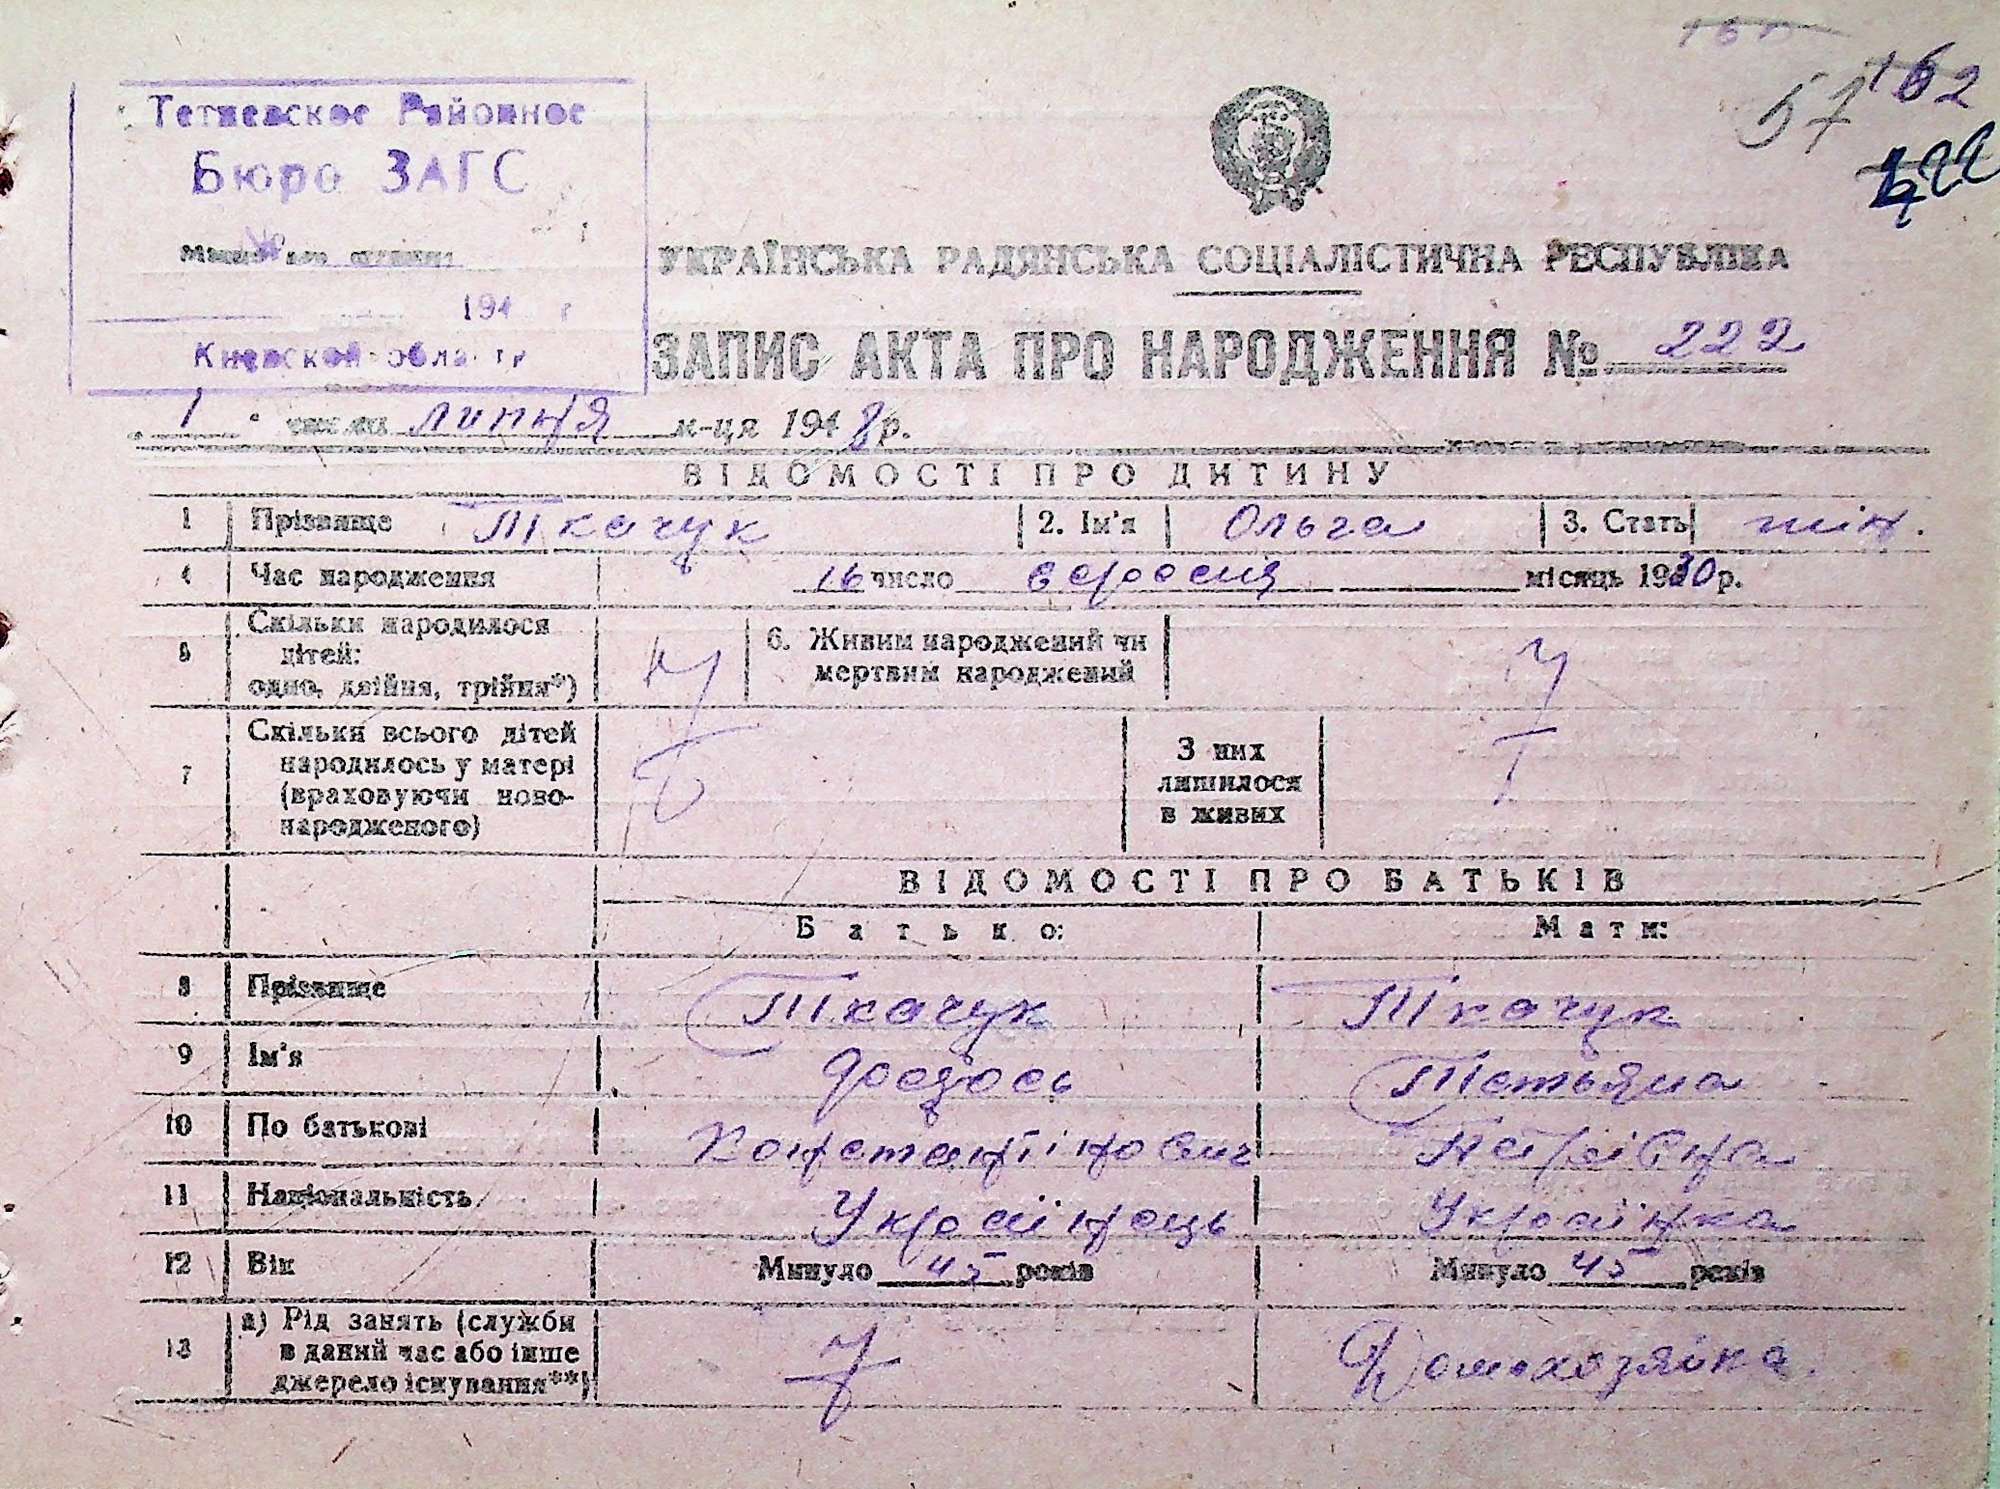 57 162
222
Тетиевское Районное
Бюро ЗАГС
№
194 г
Киевской области
УКРАЇНСЬКА РАДЯНСЬКА СОЦІАЛІСТИЧНА РЕСПУБЛІКА
ЗАПИС АКТА ПРО НАРОДЖЕННЯ № 222
1 числа липня м-ця 1948 р.
ВІДОМОСТІ ПРО ДИТИНУ
1 Прізвище Ткачук 2. Ім'я Ольга 3. Стать жін.
4 Час народження 16 число вересня місяць 1930 р.
5 Скільки народилося дітей: одно, двійня, трійня*)
6. Живим народжений чи мертвим народжений
7 Скільки всього дітей народилось у матері (враховуючи новонародженого)
З них лишилося в живих
ВІДОМОСТІ ПРО БАТЬКІВ
Батько: Мати:
8 Прізвище Ткачук Ткачук
9 Ім'я Федось Тетьяна
10 По батькові Константінович Петрівна
11 Національність Українець Українка
12 Вік Минуло 45 років Минуло 45 років
13 а) Рід занять (служби в даний час або інше джерело існування**) Домохозяйка.